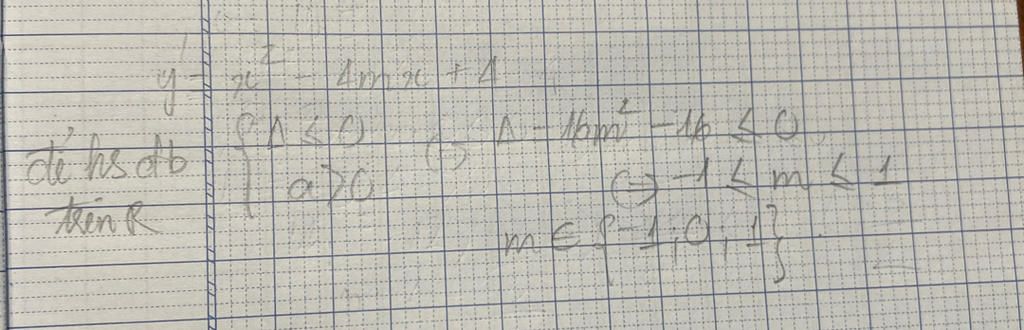 y' = x² - 4mx + 4
để hs đb trên R { Δ ≤ 0 a > 0 (=) Δ = 16m² - 16 ≤ 0
(=) -1 ≤ m ≤ 1
m ∈ {-1; 0; 1}